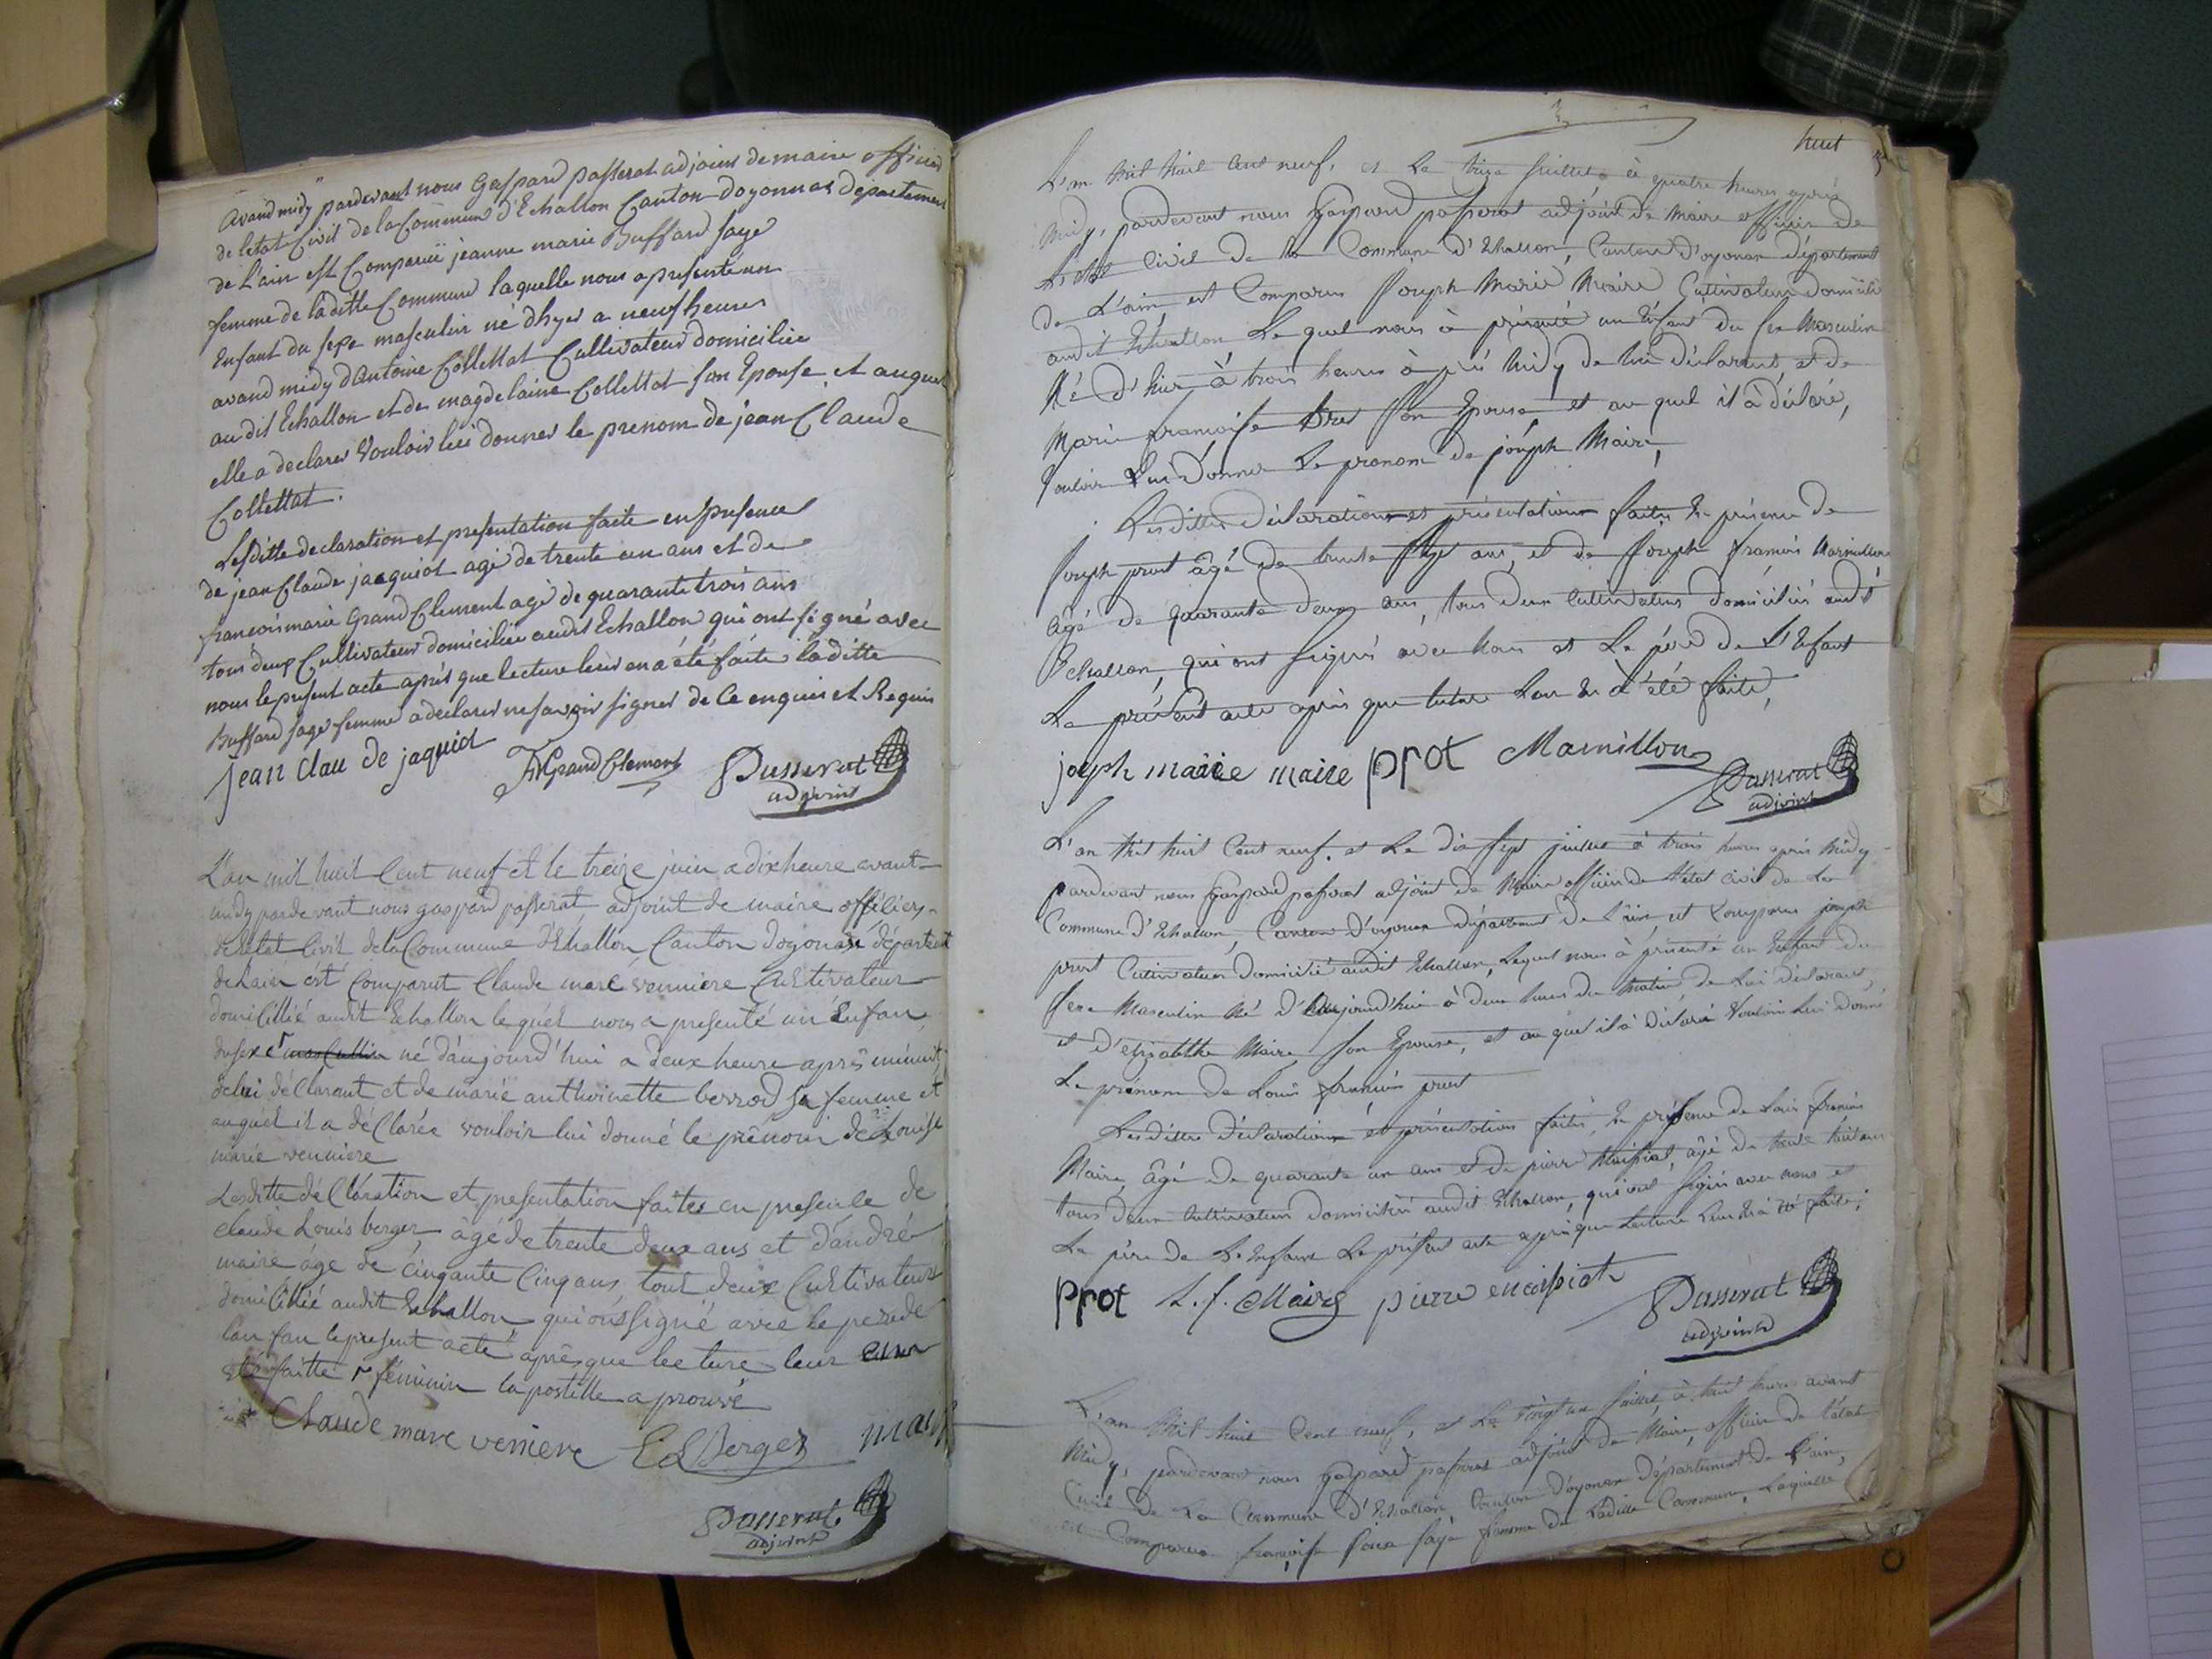 avand midy pardevant nous Gaspard passerat adjoint de maire officier
de letat Civil de la Commune d'Echallon Canton doyonnas departement
de L'ain est Comparüe jeanne marie Buffard sage
femme de laditte Commune laquelle nous a presenté un
Enfant du sexe masculin né dhyer a neuf heures
avand midy d'antoine Collettat Cultivateur domicilié
audit Echallon et de magdelaine Collettat son Epouse et auquel
elle a declarer Vouloir lui donner le prenom de jean Claude
Collettat.
Lesditte declaration et presentation faite en presence
de jean Claude jacquiot agé de trente un ans et de
francois marie Grand Clement agé de quarante trois ans
tous deux Cultivateur domicilié audit Echallon qui ont signé avec
nous le present acte après que lecture leur en a été faite laditte
Buffard sage femme a declarer ne savoir signer de Ce enquis et Requis
jean clau de jaquiot grand Clement Passerat
adjoint
L'an mil huit Cent neuf et le treize juin a dix heure avant
midy pardevant nous gaspard passerat adjoint de maire officiers
de letat Civil de la Commune d'Echallon Canton dogonax départemt
de Lain est Comparut Claude marc verniere Cultivateur
domicillié audit Echallon lequel nous a presenté un Enfan
du sexe masCullin né d'aujourd'hui a deux heure après minuit
de lui déclarant et de marie anthoinette berrod sa femme et
auquel il a déClarée vouloir lui donné le prénom de Louise
marie verniere
Lesditte déClaration et presentation faites en presence de
claude Louis berger âgé de trente deux ans et d'andré
maire âge de cinqante cinq ans tout deux Cultivateurs
domicillié audit Echallon qui ons signé avec le pere de
lan fan le present acte après que lecture leur en a
été faitte féminin lapostille a prouvé
Claude marc verniere C L Berger mai
Passerat
adjoint
huit
L'an Mil huit Cent neuf, et Le treize juillet, à quatre heures après
Midy, pardevant nous Gaspard passerat adjoint de Maire officier de
L'état Civil de la Commune d'Echallon, Canton d'oyonax département
de L'ain, est Comparus Joseph Marie Maire Cultivateur domicilié
audit Echallon Le quel nous à présenté un Enfant du sexe Masculin
Né d'hier à trois heures à près Midy de lui déclarant, et de
Marie françoise Son Epouse et au quel il à déclaré,
Vouloir Lui donner Le prenom de joseph Maire,
Lesdittes déclarations et présentations faites En présence de
Joseph prost âgé de trente sept ans, et de Joseph françois Marmillon
âgé de quarante deux ans, tous deux Cultivateurs domiciliés audit
Echallon, qui ont Signés avec Nous et Le père de L'Enfant
Le présent acte après que lecture Leur En à été faite,
joseph maire maire prot Marmillon
Passerat
adjoint
L'an Mil huit Cent neuf. et Le dix sept juillet à trois heures après Midy
pardevant nous Gaspard passerat adjoint de Maire officier de l'état civil de La
Commune d'Echallon, Canton d'oyonax département de L'ain, est Comparus joseph
prost Cultivateur domicilié audit Echallon, Lequel nous à présenté un Enfant du
sexe Masculin Né d'aujourd'hui à deux heures du Matin de Lui déclarant,
et d'elizabethe Maire Son Epouse, et au quel il à déclaré Vouloir Lui donné
Le prénom de Louis françois prost
Lesdittes déclarations et présentations faites, En présence de Louis françois
Maire, âgé de quarante un ans et de pierre âgé de trente huit ans
tous deux Cultivateurs domiciliés audit Echallon, qui ont Signés avec nous et
Le père de L'Enfant Le présent acte après que Lecture Leur En à été faite;
Prot L. f. Maire pierre Passerat
adjoint
L'an Mil huit Cent neuf, et Le Vingt un juillet, à huit heures avant
Midy, pardevant nous Gaspard passerat adjoint de Maire, officier de l'état
Civil de La Commune d'Echallon, Canton d'oyonax département de L'ain,
est Comparue françoise sage femme de Laditte Commune, Laquelle